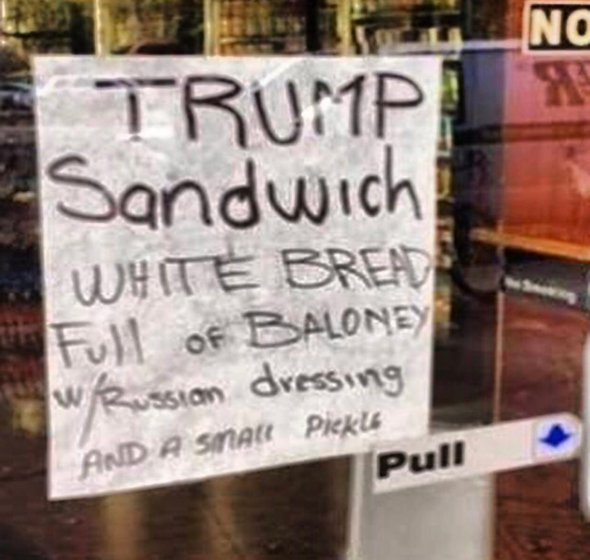 TRUMP
Sandwich
WHITE BREAD
Full OF BALONEY
w/Russian dressing
AND A small Pickle
Pull
NO
No Smoking